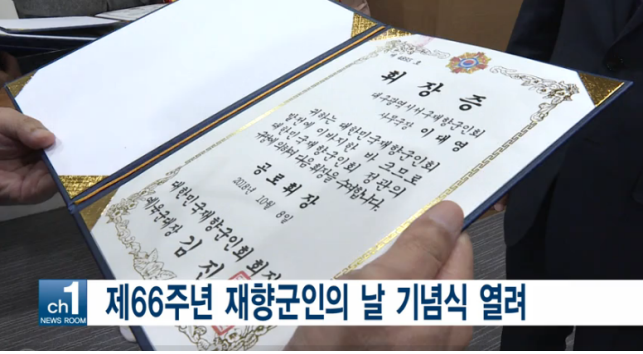 휘장증
대구광역시서구재향군인회
사무국장 이대영
귀하는 대한민국재향군인회
발전에 이바지한 바 크므로
대한민국재향군인회 정관의
규정에 의하여 다음 휘장을 수여합니다.
공로휘장
2018년 10월 8일
대한민국재향군인회 회장
육군대장 김진
ch1
NEWS ROOM
제66주년 재향군인의 날 기념식 열려